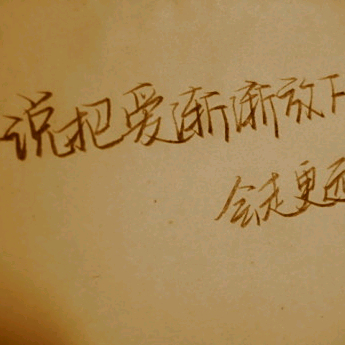 说把爱渐渐放下
会走更远